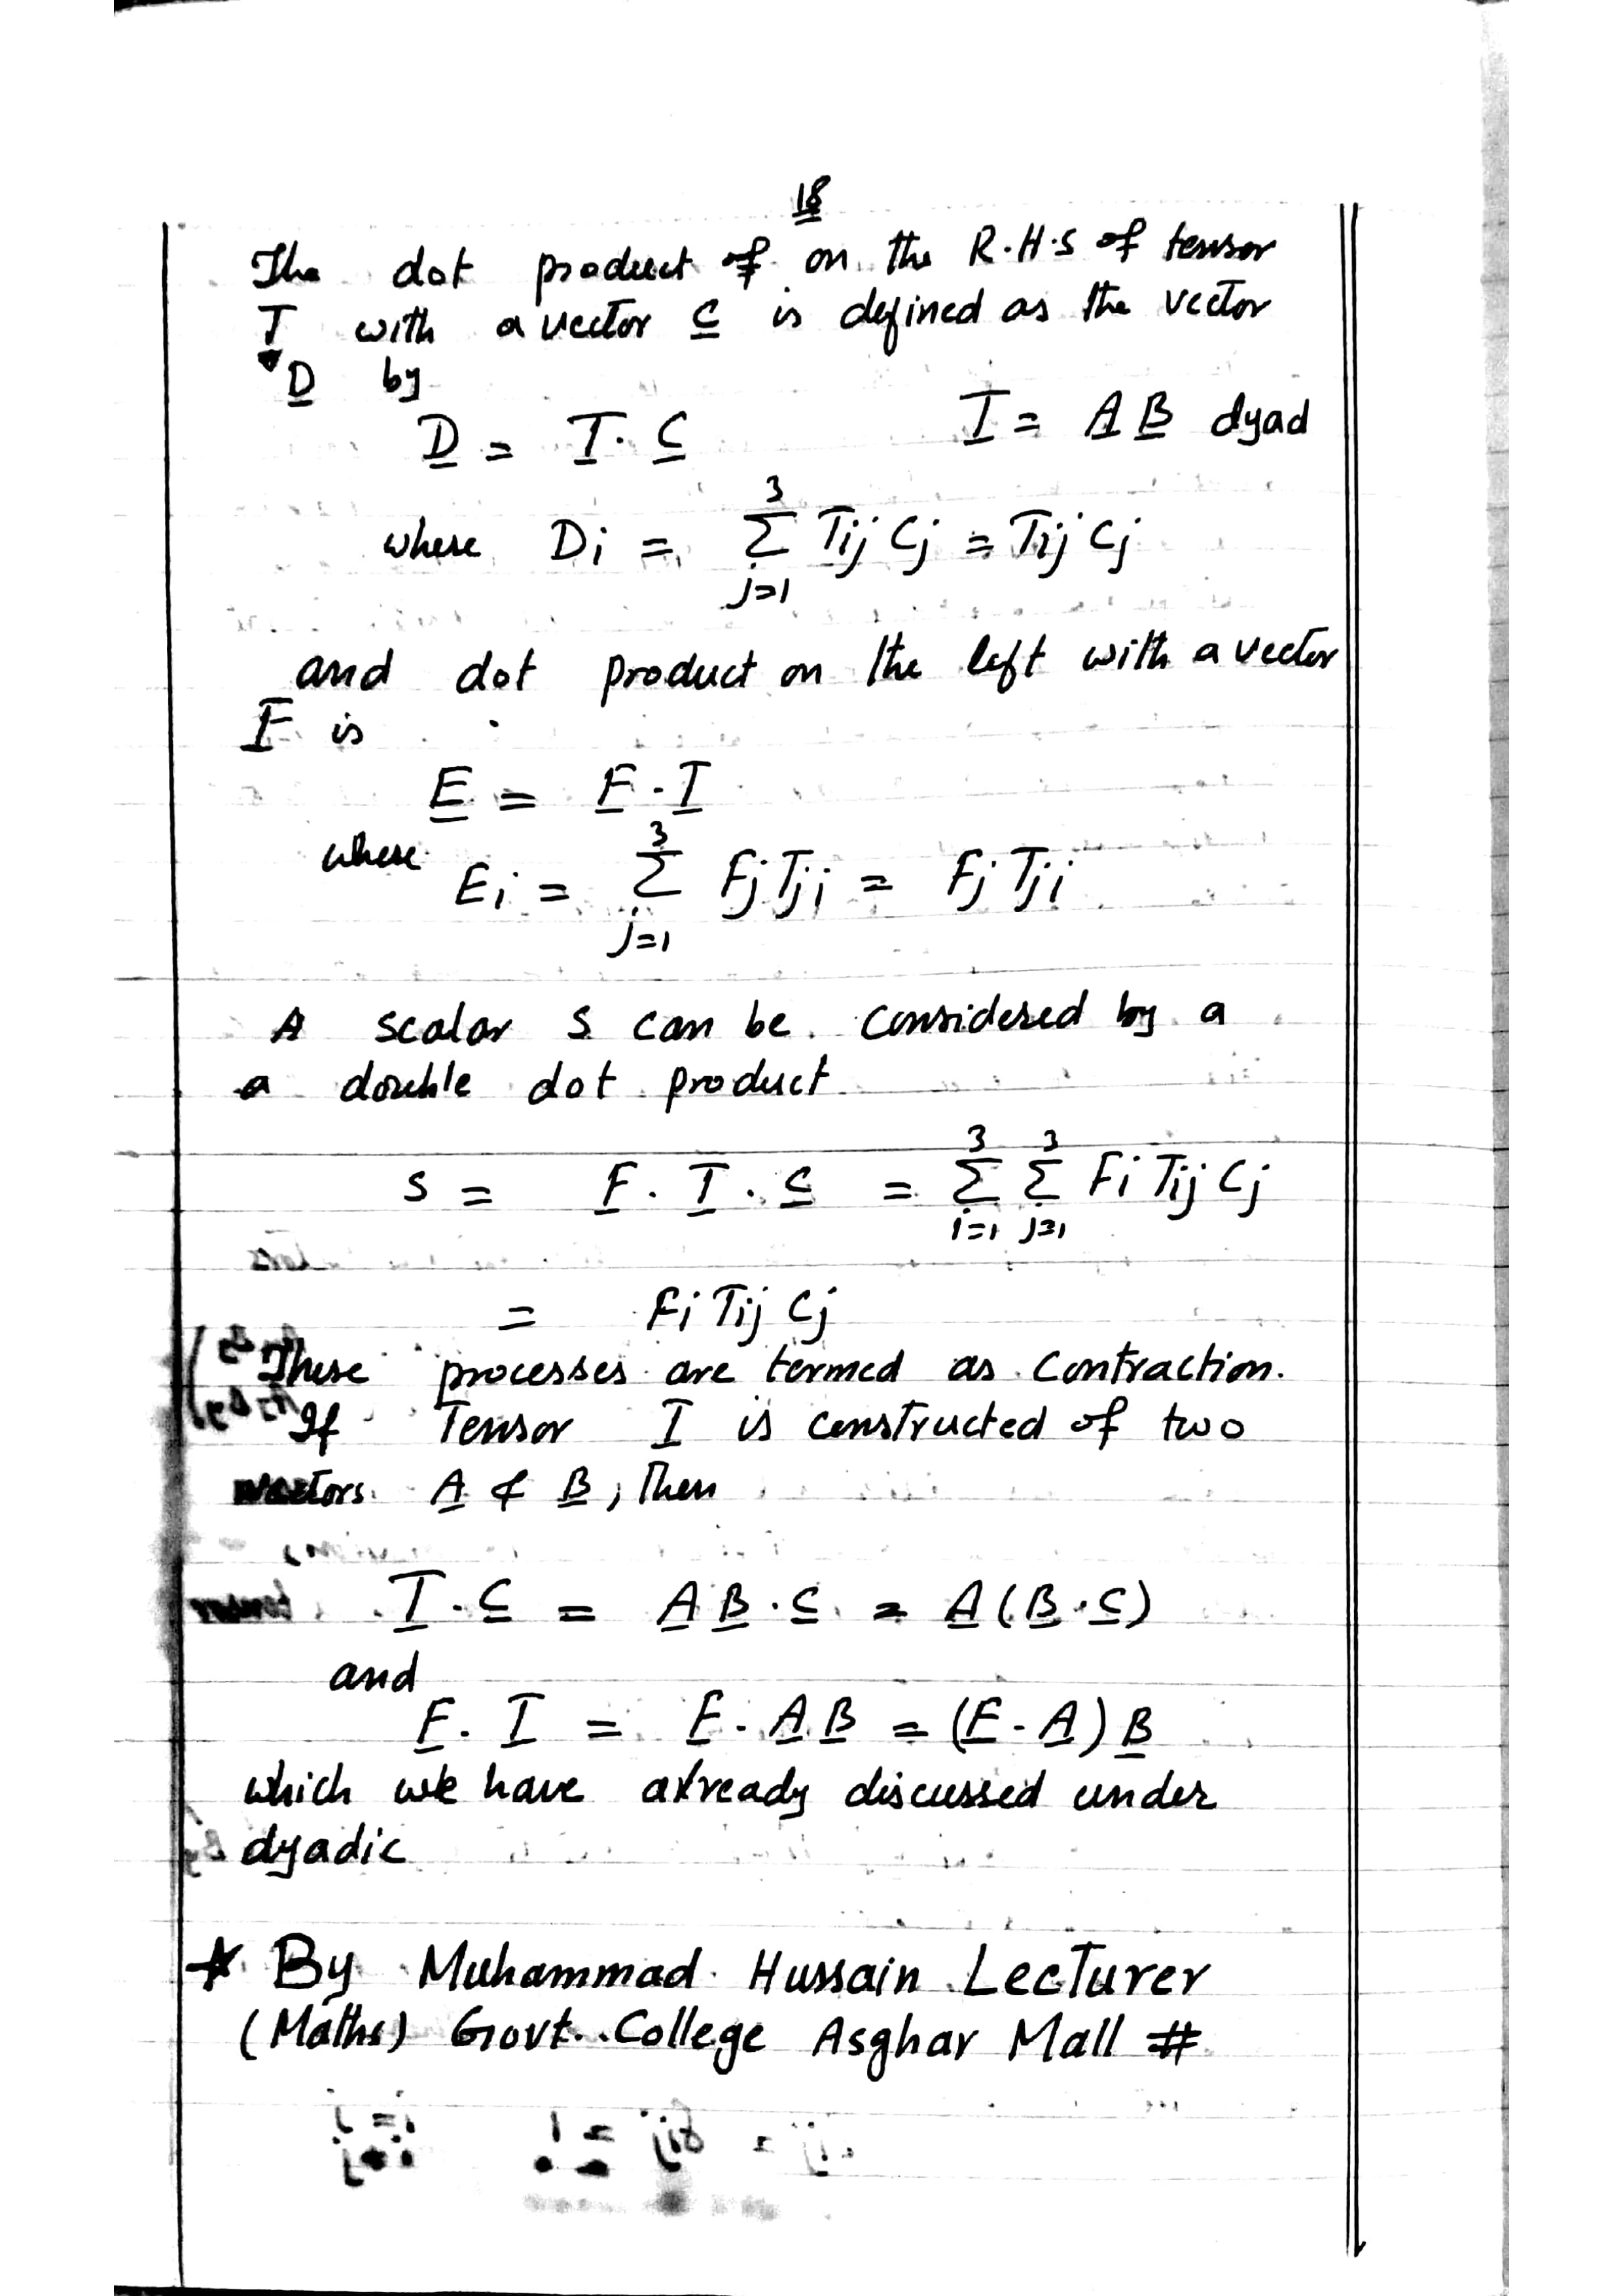 18
The dot product of on the R.H.S of tensor
T with a vector C is defined as the vector
D by
D = T . C T = A B dyad
where Di = 3 Σ j=1 Tij Cj = Tij Cj
and dot product on the left with a vector
F is
E = F . T
where Ei = 3 Σ j=1 Fj Tji = Fj Tji
A scalar S can be considered by a
a double dot product
S = F . T . C = 3 Σ i=1 3 Σ j=1 Fi Tij Cj
= Fi Tij Cj
These processes are termed as contraction.
If Tensor T is constructed of two
vectors A & B, Then
T . C = A B . C = A (B . C)
and
F . T = F . A B = (F . A) B
which we have already discussed under
dyadic
* By Muhammad Hussain Lecturer
(Maths) Govt. College Asghar Mall #